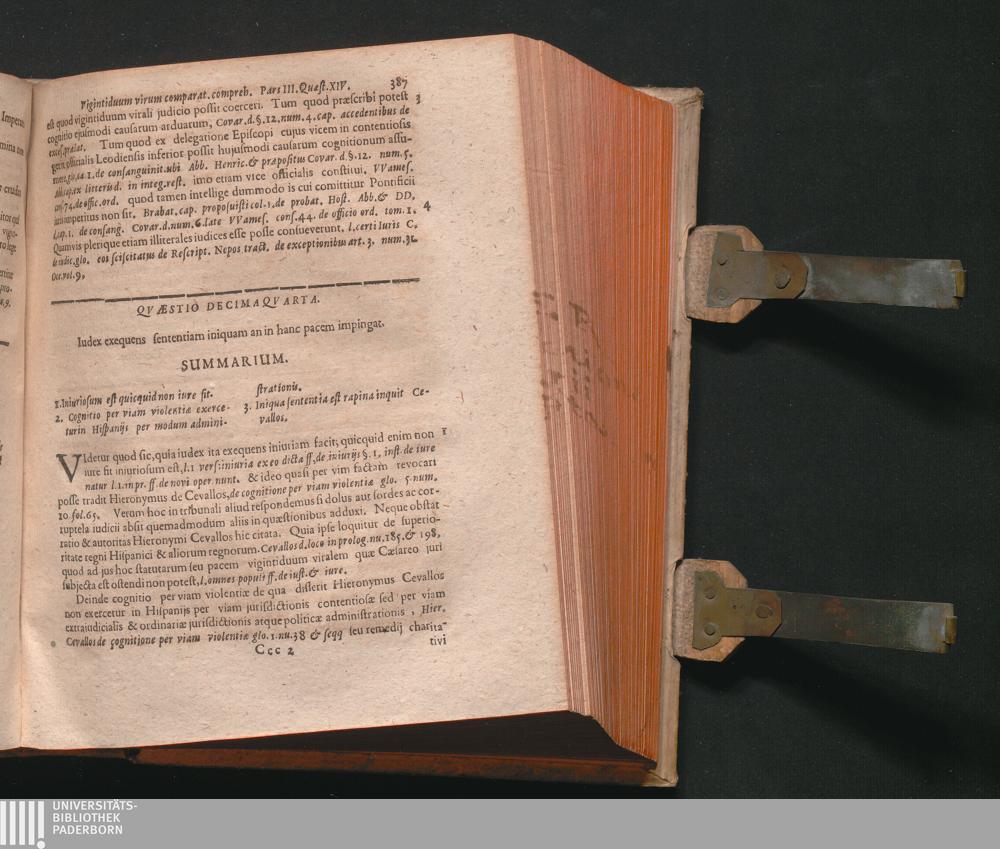 Vigintiduum virum comparat. compreh. Pars III. Quæst. XIV. 387
est quod vigintiduum virali judicio possit coerceri. Tum quod præscribi potest 3
cognitio ejusmodi causarum arduarum, Covar. d. §. 12. num. 4. cap. accedentibus de
Tum quod ex delegatione Episcopi cujus vicem in contentiosis
officialis Leodiensis inferior possit hujusmodi causarum cognitionum assu-
1. de consanguinit. ubi Abb. Henric. & præpositus Covar. d. §. 12. num. 5.
ex literis d. in integ. rest. imo etiam vice officialis constitui, VVames.
74. de offic. ord. quod tamen intellige dummodo is cui comittitur Pontificii
imperitus non sit. Brabat. cap. proposuisti col. 1. de probat. Host. Abb. & DD.
1. de consang. Covar. d. num. 6. late VVames. cons. 44. de officio ord. tom. 1. 4
Quamvis plerique etiam illiterales iudices esse posse consueverunt, l. certi Iuris C.
de iudic. glo. eos sciscitatus de Rescript. Nepos tract. de exceptionibus art. 3. num. 31.
vol. 9,
QVÆSTIO DECIMAQVARTA.
Iudex exequens sententiam iniquam an in hanc pacem impingat.
SUMMARIUM.
1. Iniuriosum est quicquid non iure fit.
2. Cognitio per viam violentiæ exerce-
turin Hispanijs per modum admini-
strationis.
3. Iniqua sententia est rapina inquit Ce-
vallos.
VIdetur quod sic, quia iudex ita exequens iniuriam facit; quicquid enim non 1
iure fit iniuriosum est, l. 1 vers: iniuria ex eo dicta ff, de iniurijs §. 1, inst. de iure
natur l. 1. in pr. ff. de novi oper nunt. & ideo quasi per vim factam revocari
posse tradit Hieronymus de Cevallos, de cognitione per viam violentiæ glo. 5 num.
10 fol. 65. Verum hoc in tribunali aliud respondemus si dolus aut sordes ac cor-
ruptela iudicii absit quemadmodum aliis in quæstionibus adduxi. Neque obstat
ratio & autoritas Hieronymi Cevallos hic citata. Quia ipse loquitur de superio-
ritate regni Hispanici & aliorum regnorum. Cevallos d. loco in prolog. nu. 185. & 198,
quod ad jus hoc statutarum seu pacem vigintiduum viralem quæ Cæsareo juri
subjecta est ostendi non potest, l. omnes populi ff. de iust. & iure.
Deinde cognitio per viam violentiæ de qua disserit Hieronymus Cevallos
non exercetur in Hispanijs per viam jurisdictionis contentiosæ sed per viam
extrajudicialis & ordinariæ jurisdictionis atque politicæ administrationis, Hier.
Cevallos de cognitione per viam violentiæ glo. 1. nu. 38 & seqq seu remedij charita-
Ccc 2 tivi
UNIVERSITÄTS-
BIBLIOTHEK
PADERBORN